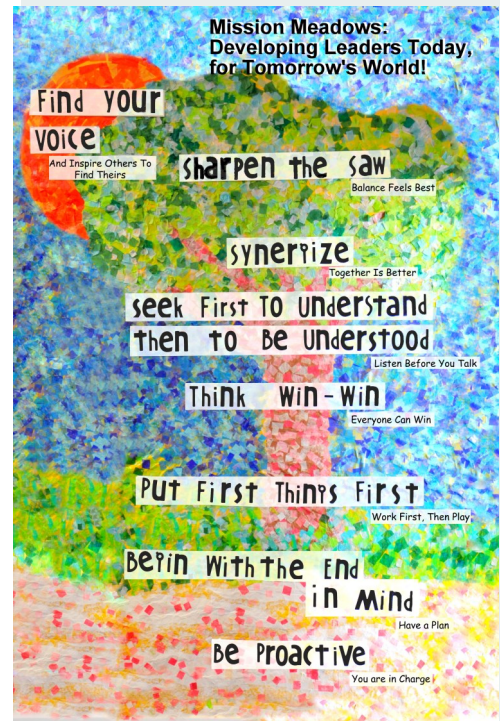 Mission Meadows:
Developing Leaders Today,
for Tomorrow's World!
Find your
voice
And Inspire Others To
Find Theirs
Sharpen the Saw
Balance Feels Best
Synergize
Together Is Better
Seek First To Understand
then to Be Understood
Listen Before You Talk
Think Win-Win
Everyone Can Win
Put First Things First
Work First, Then Play
Begin With the End
in Mind
Have a Plan
Be Proactive
You are in Charge